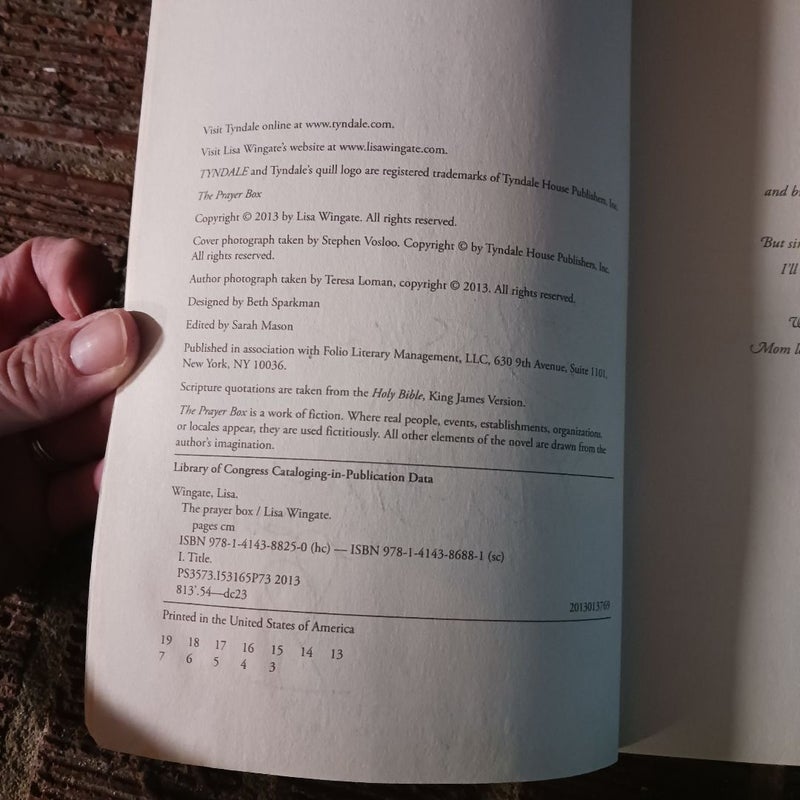 Visit Tyndale online at www.tyndale.com.
Visit Lisa Wingate's website at www.lisawingate.com.
TYNDALE and Tyndale's quill logo are registered trademarks of Tyndale House Publishers, Inc.
The Prayer Box
Copyright © 2013 by Lisa Wingate. All rights reserved.
Cover photograph taken by Stephen Vosloo. Copyright © by Tyndale House Publishers, Inc.
All rights reserved.
Author photograph taken by Teresa Loman, copyright © 2013. All rights reserved.
Designed by Beth Sparkman
Edited by Sarah Mason
Published in association with Folio Literary Management, LLC, 630 9th Avenue, Suite 1101,
New York, NY 10036.
Scripture quotations are taken from the Holy Bible, King James Version.
The Prayer Box is a work of fiction. Where real people, events, establishments, organizations,
or locales appear, they are used fictitiously. All other elements of the novel are drawn from the
author's imagination.
Library of Congress Cataloging-in-Publication Data
Wingate, Lisa.
The prayer box / Lisa Wingate.
pages cm
ISBN 978-1-4143-8825-0 (hc) — ISBN 978-1-4143-8688-1 (sc)
I. Title.
PS3573.I53165P73 2013
813'.54—dc23
2013013769
Printed in the United States of America
19 18 17 16 15 14 13
7 6 5 4 3
and
But
I'll
Mom